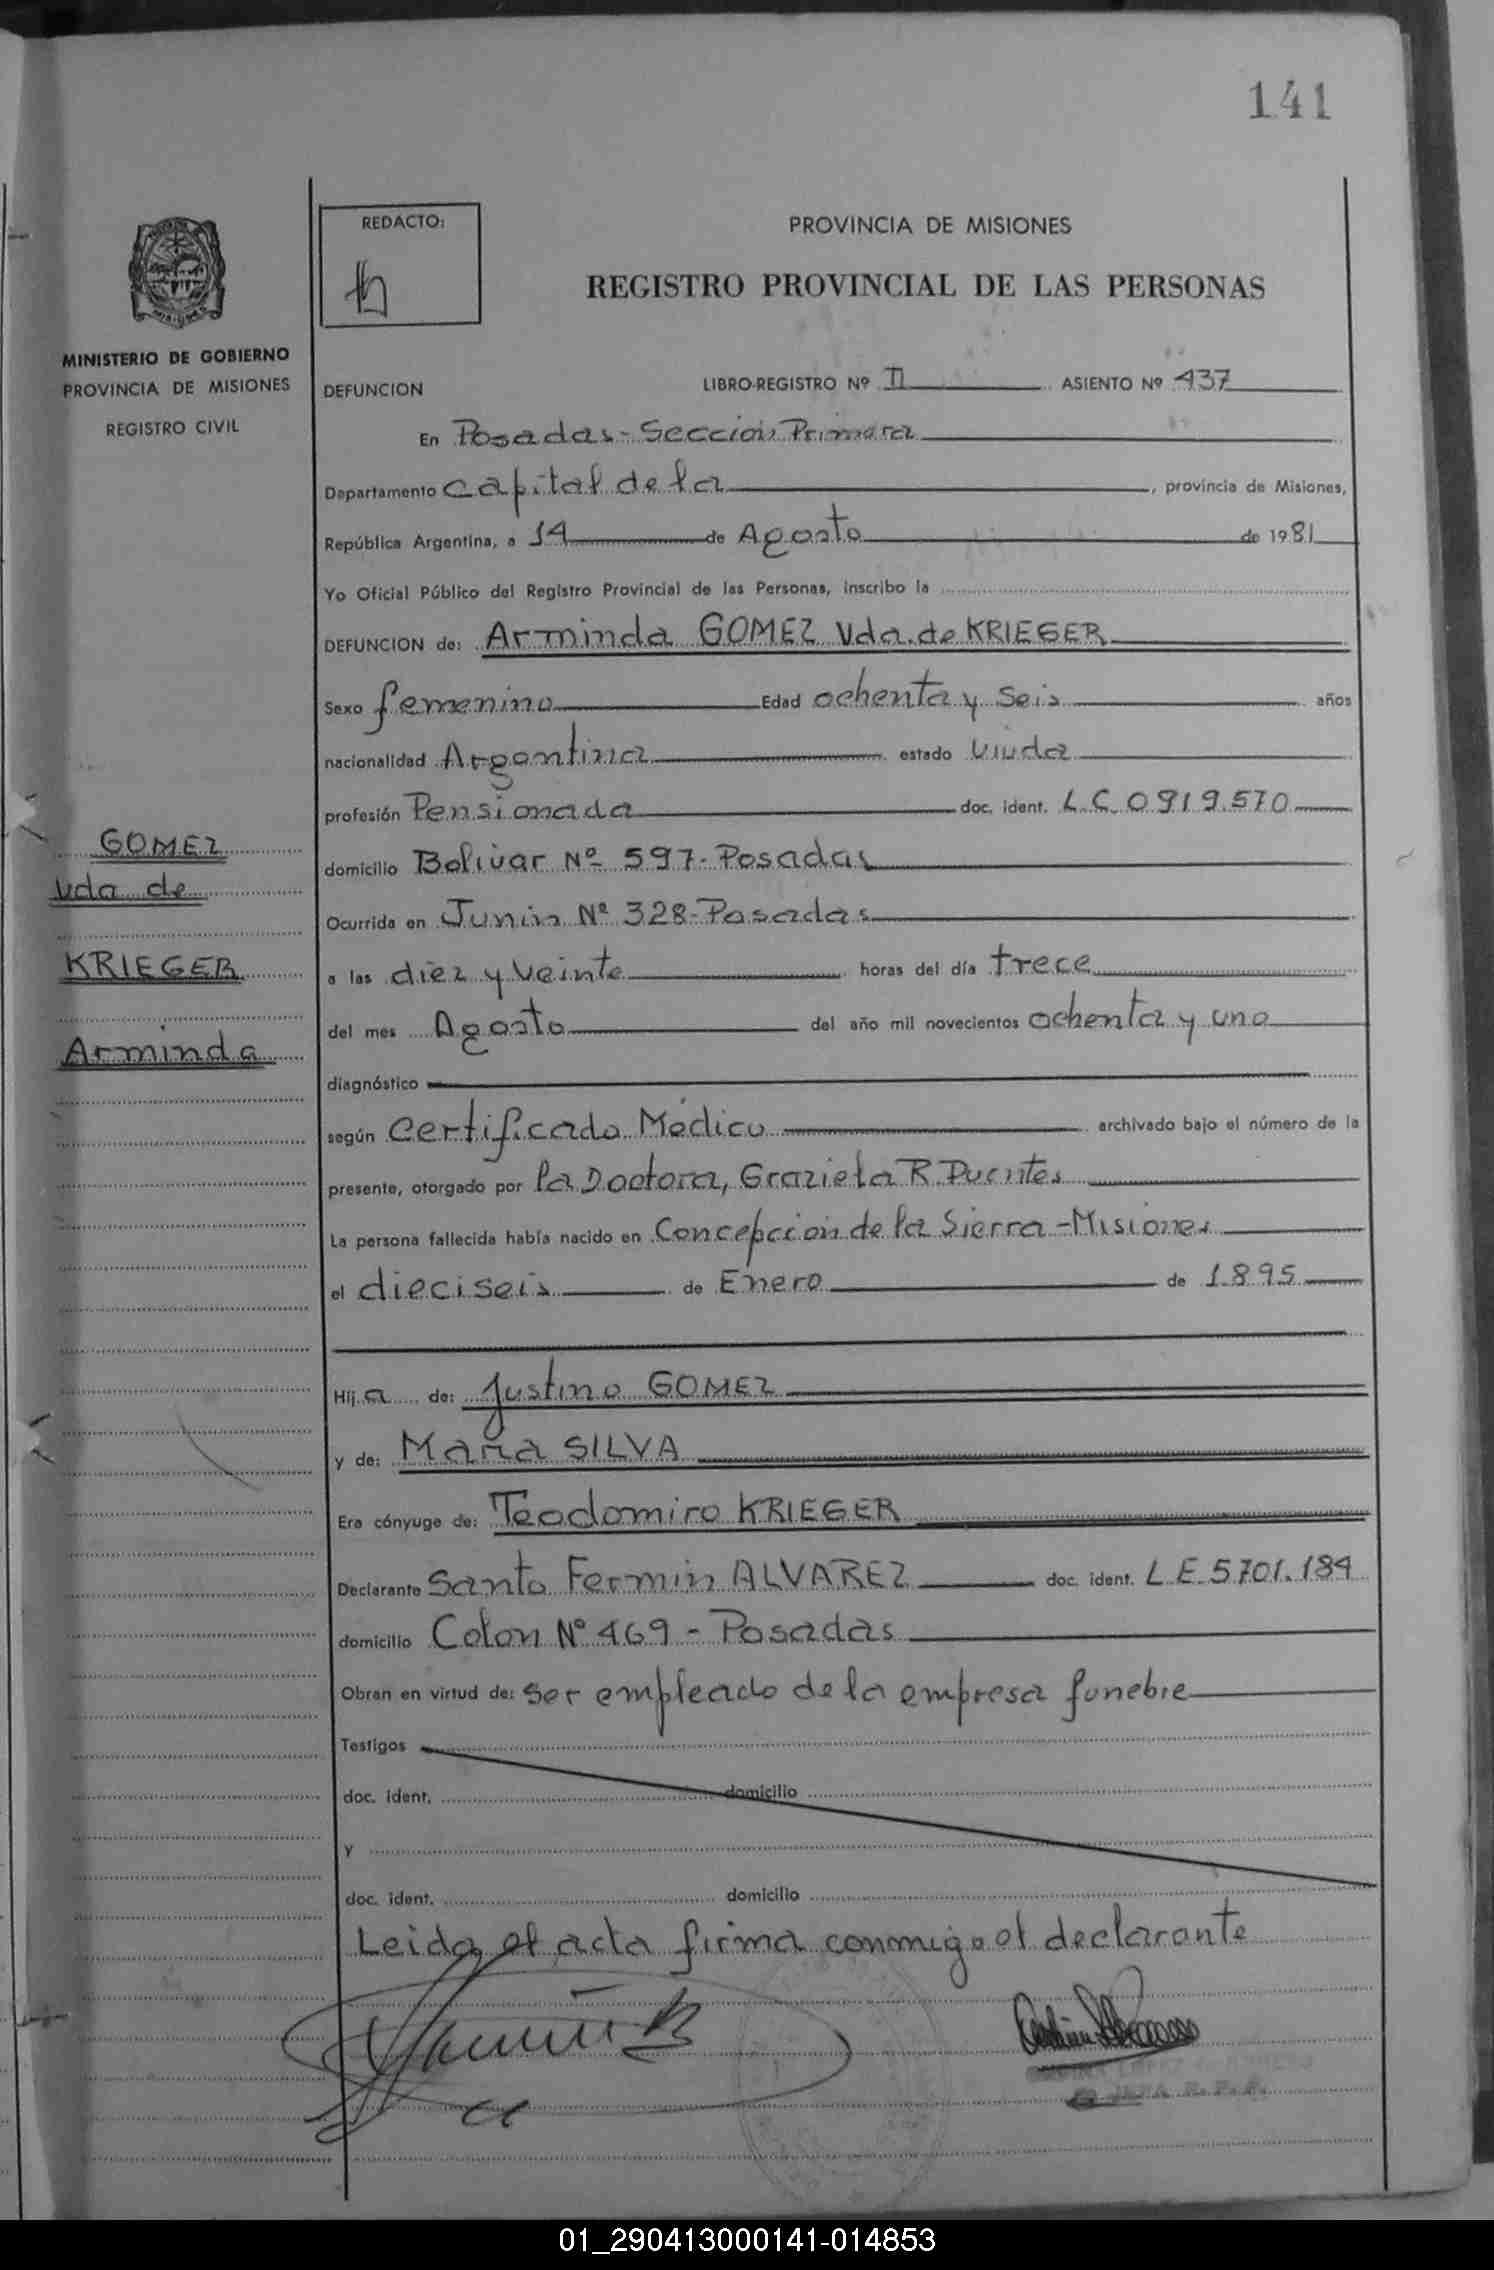 141
REDACTO:
PROVINCIA DE MISIONES
REGISTRO PROVINCIAL DE LAS PERSONAS
MINISTERIO DE GOBIERNO
PROVINCIA DE MISIONES
REGISTRO CIVIL
DEFUNCION LIBRO-REGISTRO Nº II ASIENTO Nº 437
En Posadas - Sección Primera
Departamento Capital de la, provincia de Misiones,
República Argentina, a 14 de Agosto de 1981
Yo Oficial Público del Registro Provincial de las Personas, inscribo la
DEFUNCION de: Arminda GOMEZ Vda. de KRIEGER
Sexo femenino Edad ochenta y seis años
nacionalidad Argentina estado Viuda
profesión Pensionada doc. ident. L.C. 0.919.570
GOMEZ
Vda de
KRIEGER
Arminda
domicilio Bolivar Nº 597 - Posadas
Ocurrida en Junín Nº 328 - Posadas
a las diez y veinte horas del día trece
del mes Agosto del año mil novecientos ochenta y uno
diagnóstico
según Certificado Médico archivado bajo el número de la
presente, otorgado por la Doctora, Graziela R. Puentes
La persona fallecida había nacido en Concepción de la Sierra - Misiones
el dieciseis de Enero de 1895
Hija de: Justino GOMEZ
y de: María SILVA
Era cónyuge de: Teodomiro KRIEGER
Declarante Santo Fermín ALVAREZ doc. ident. L.E. 5.701.184
domicilio Colon Nº 469 - Posadas
Obran en virtud de: ser empleado de la empresa funebre
Testigos
doc. ident. domicilio
y
doc. ident. domicilio
Leida el acta firma conmigo el declarante
JEFA R.P.P.
01_290413000141-014853